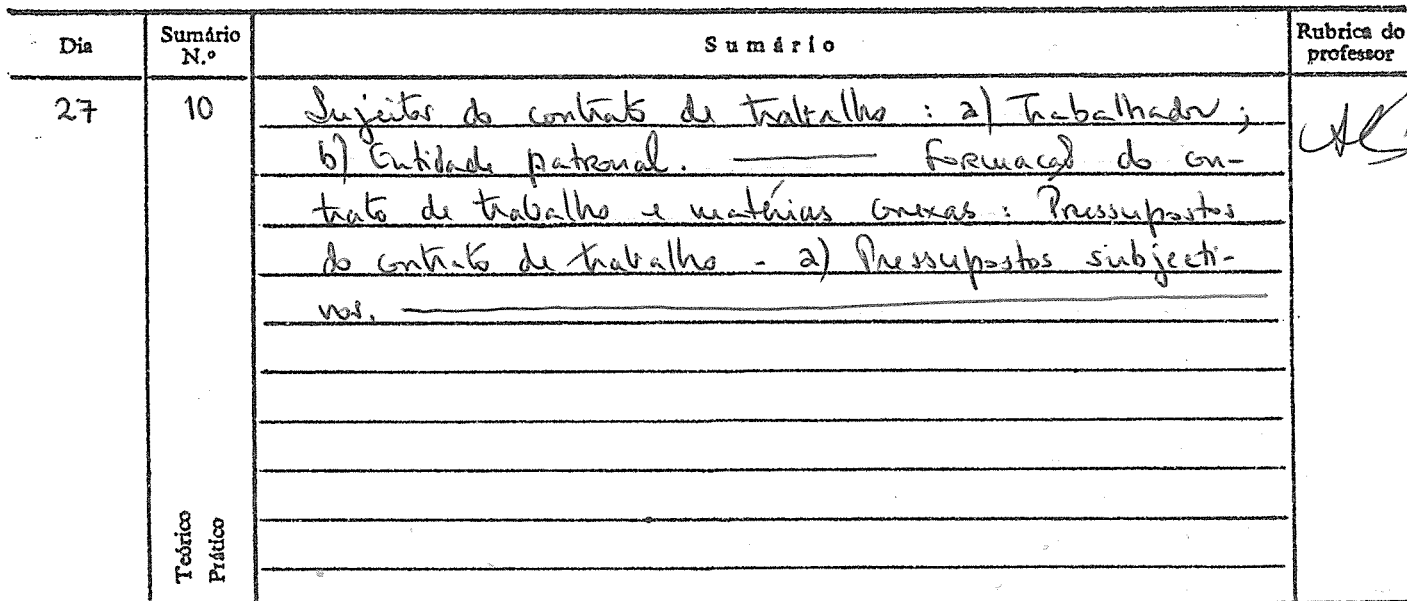 Dia Sumário N.º Sumário Rubrica do professor
27 10 Sujeitos do contrato de trabalho : a) Trabalhador ;
b) Entidade patronal. ——— Formação do con-
trato de trabalho e matérias conexas : Pressupostos
do contrato de trabalho - a) Pressupostos subjecti-
vos. ———
Teórico
Prático